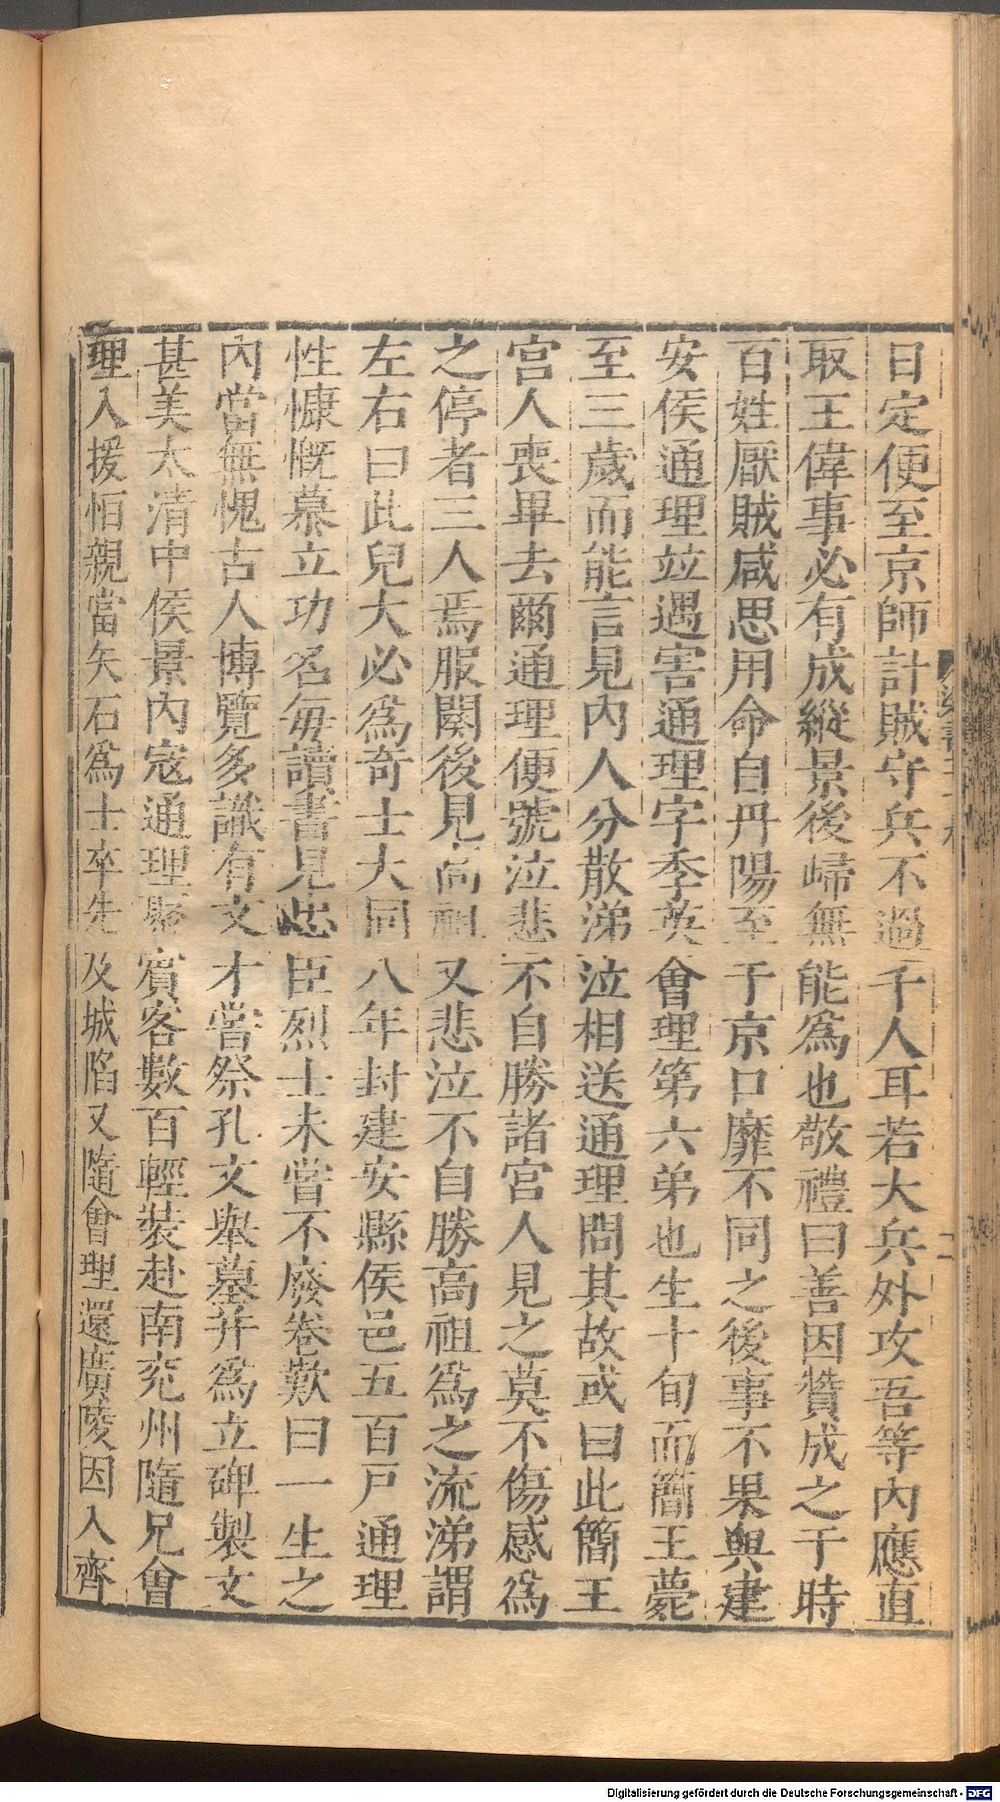 日定便至京師計賊守兵不過千人耳若大兵外攻吾等內應直
取王偉事必有成縱景後歸無能爲也敬禮曰善因贊成之于時
百姓厭賊咸思用命自丹陽至于京口靡不同之後事不果與建
安侯通理竝遇害通理字季英會理第六弟也生十旬而簡王薨
至三歲而能言見內人分散涕泣相送通理問其故或曰此簡王
宮人喪畢去爾通理便號泣悲不自勝諸宮人見之莫不傷感爲
之停者三人焉服闋後見高祖又悲泣不自勝高祖爲之流涕謂
左右曰此兒大必爲奇士大同八年封建安縣侯邑五百戸通理
性慷慨慕立功名每讀書見忠臣烈士未嘗不廢卷歎曰一生之
內當無愧古人博覽多識有文才嘗祭孔文舉墓幷爲立碑製文
甚美太清中侯景內寇通理聚賓客數百輕裝赴南兖州隨兄會
理入援恒親當矢石爲士卒先及城陷又隨會理還廣陵因入齊
二
Digitalisierung gefördert durch die Deutsche Forschungsgemeinschaft - DFG